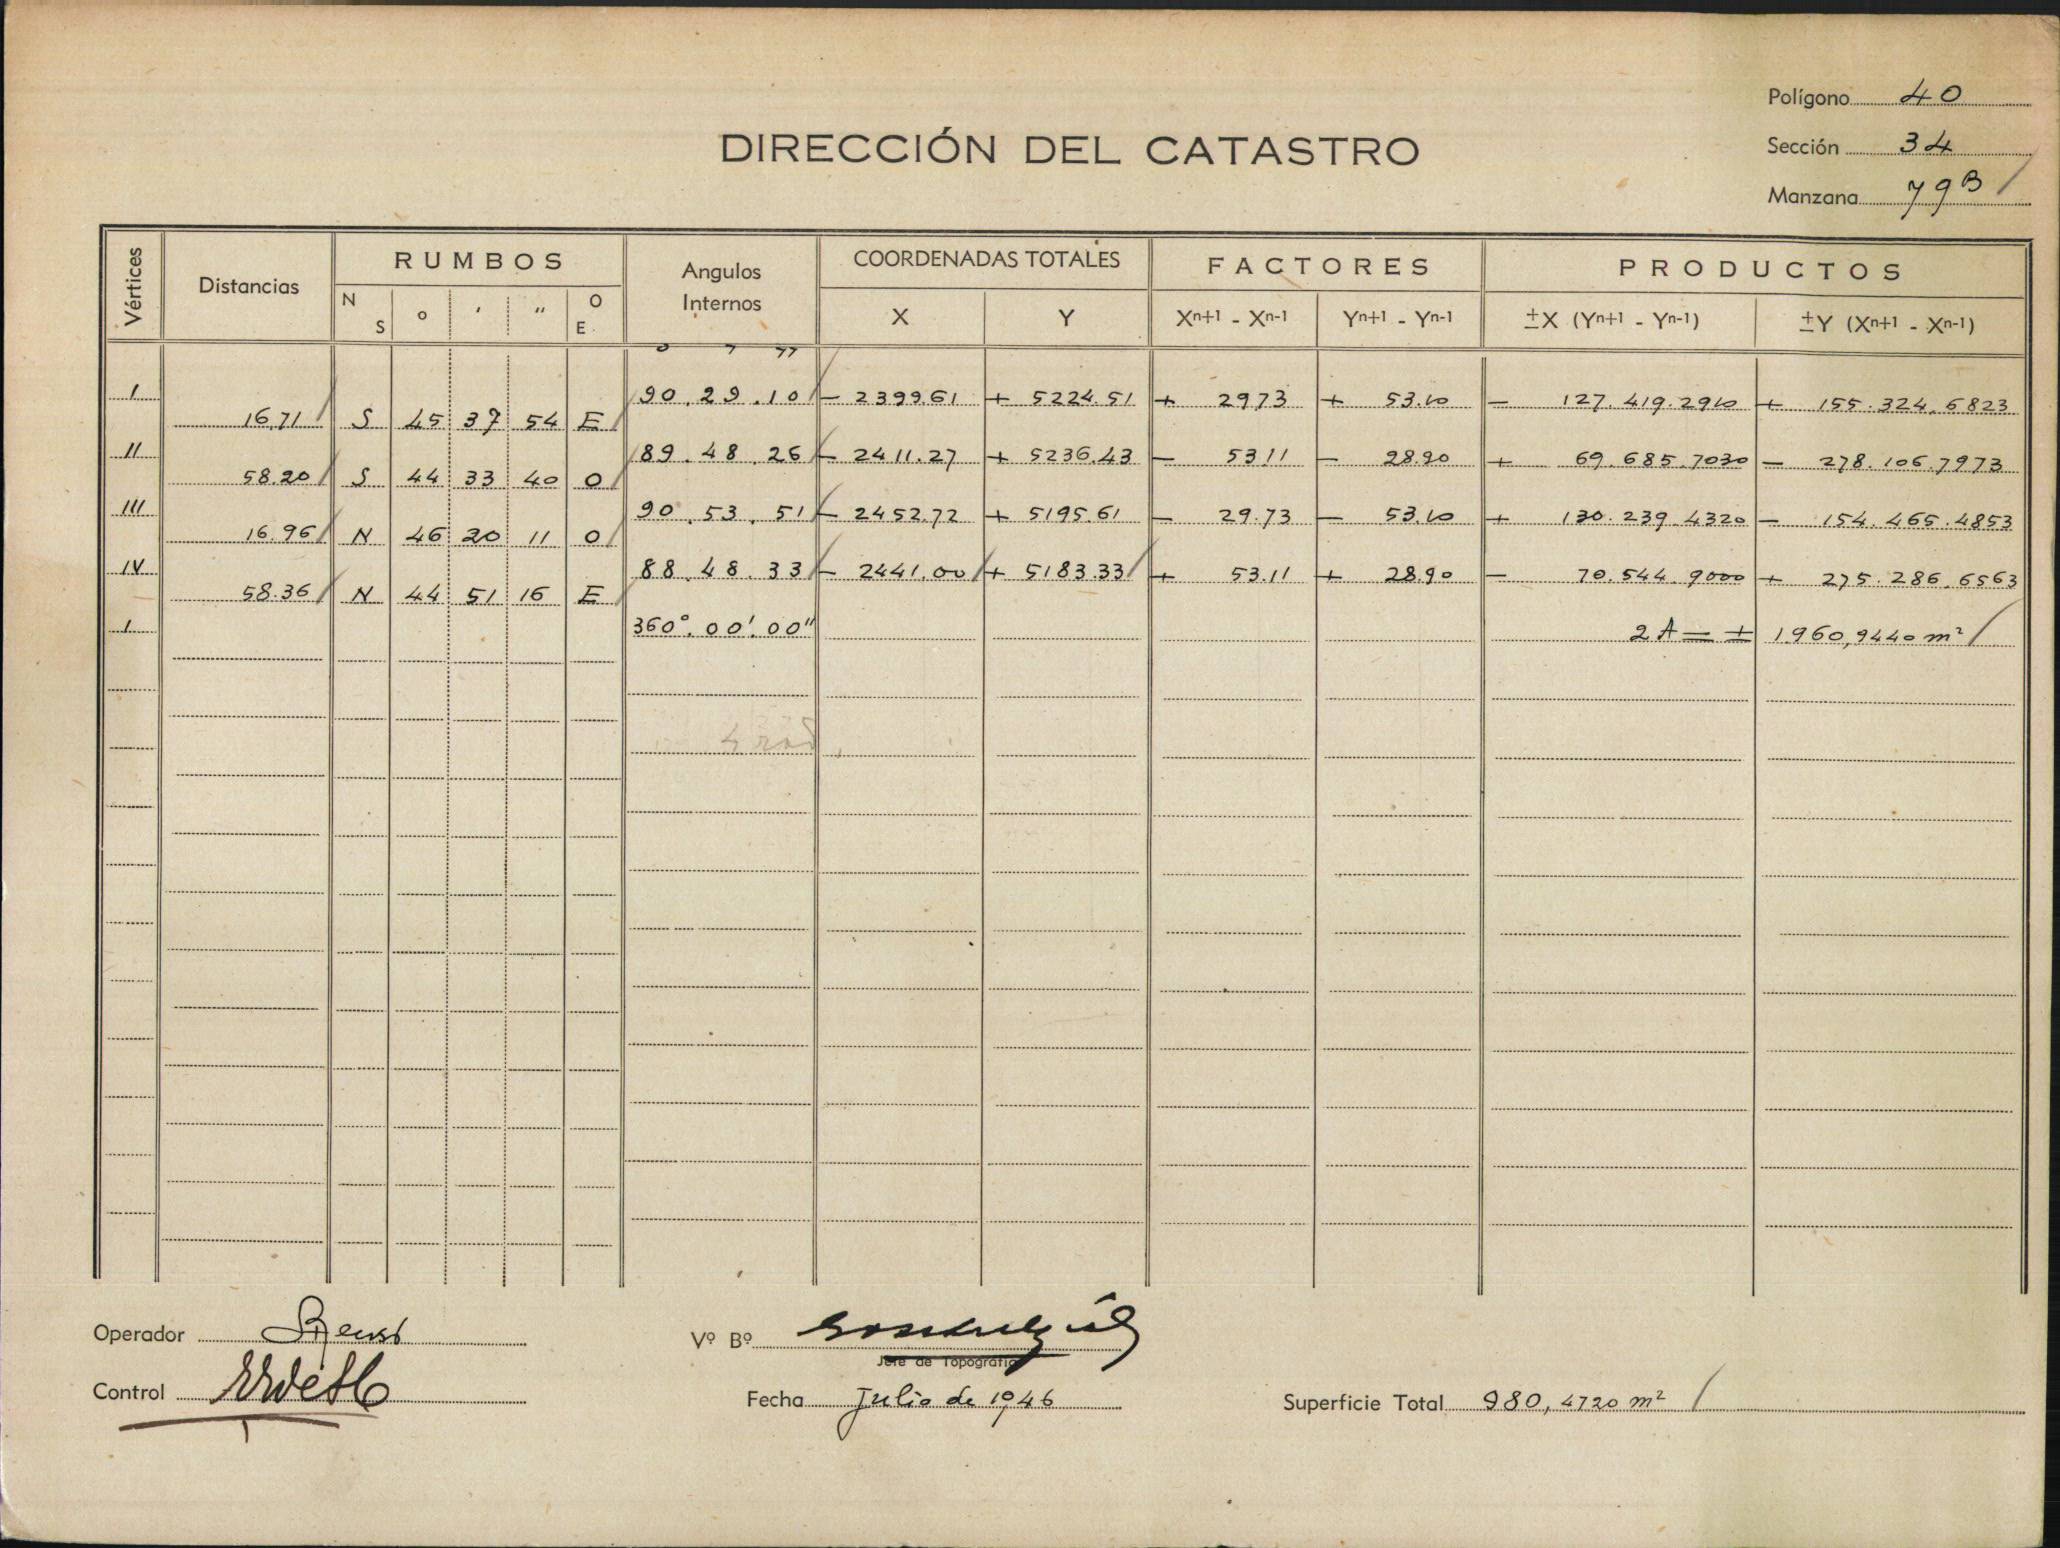 Polígono 40
DIRECCIÓN DEL CATASTRO
Sección 34
Manzana 79B
Vértices Distancias RUMBOS Angulos Internos COORDENADAS TOTALES FACTORES PRODUCTOS
N S o ' " O E X Y Xn+1 - Xn-1 Yn+1 - Yn-1 ±X (Yn+1 - Yn-1) ±Y (Xn+1 - Xn-1)
o ' "
I 90.29.10 - 2399.61 + 5224.51 + 29.73 + 53.10 - 127.419.2910 + 155.324.6823
16.71 S 45 37 54 E
II 89.48.26 - 2411.27 + 5236.43 - 53.11 - 28.90 + 69.685.7030 - 278.106.7973
58.20 S 44 33 40 O
III 90.53.51 - 2452.72 + 5195.61 - 29.73 - 53.10 + 130.239.4320 - 154.465.4853
16.96 N 46 20 11 O
IV 88.48.33 - 2441.00 + 5183.33 + 53.11 + 28.90 - 70.544.9000 + 275.286.6563
58.36 N 44 51 16 E
I 360°.00'.00" 2A = + 1.960,9440 m²
Operador
Vº Bº
Jefe de Topografía
Control
Fecha Julio de 1946
Superficie Total 980,4720 m²